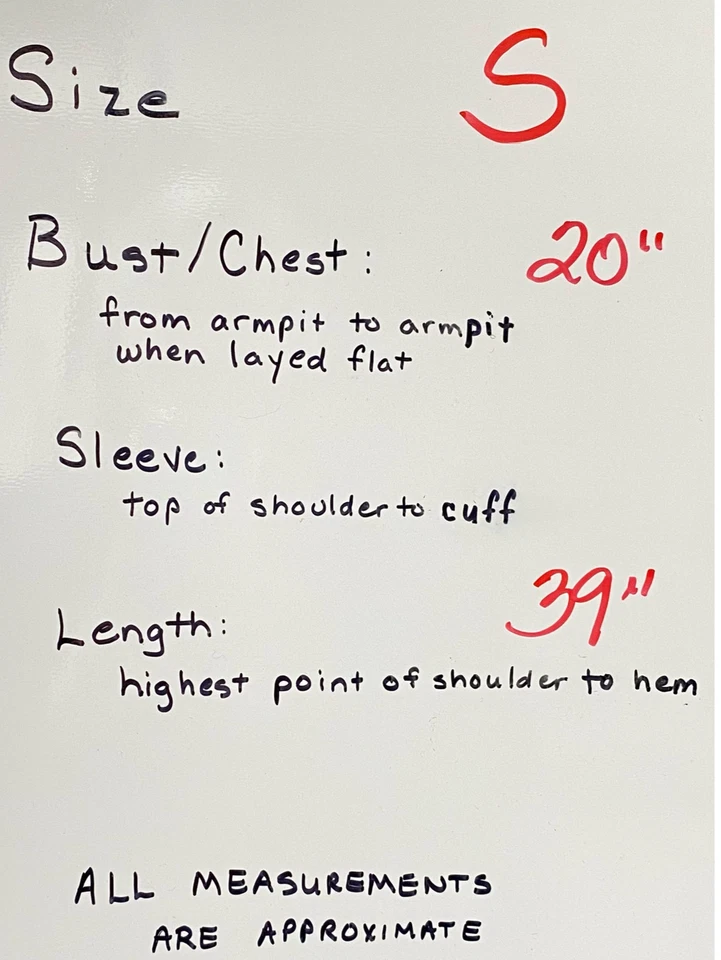 Size S
Bust/Chest: 20"
from armpit to armpit
when layed flat
Sleeve:
top of shoulder to cuff
Length: 39"
highest point of shoulder to hem
ALL MEASUREMENTS
ARE APPROXIMATE